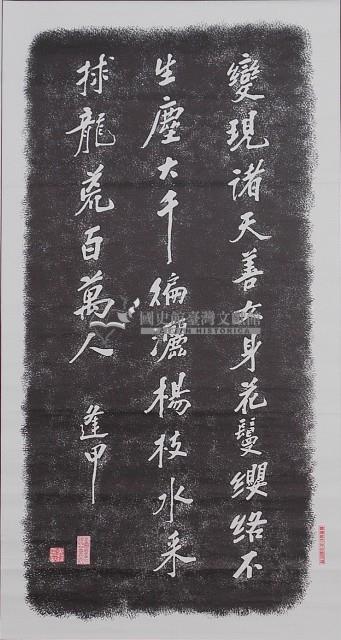 變現諸天善女身花鬘纓絡不
生塵大千徧灑楊枝水来
捄龍荒百萬人
逢甲
國史館臺灣文獻館
TAIWAN HISTORICA